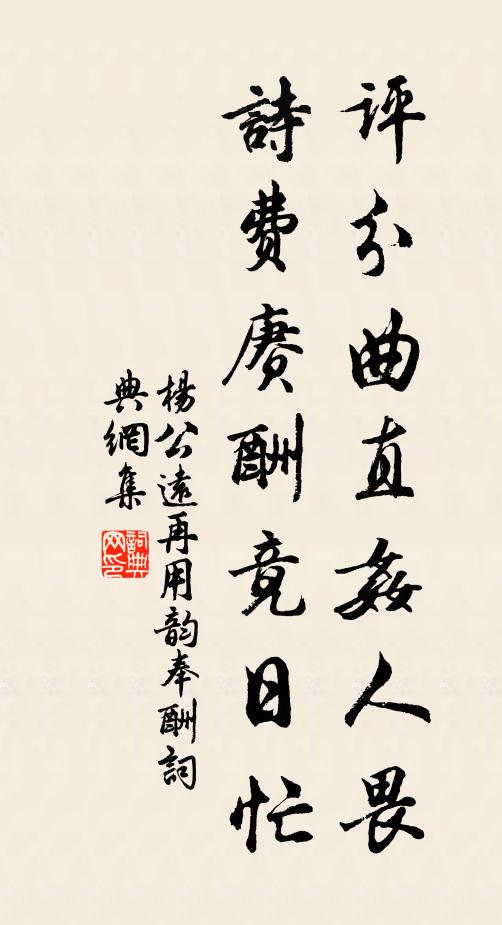 評分曲直姦人畏
詩費賡酬竟日忙
楊公遠再用韵奉酬詞
典網集
詞典
网印